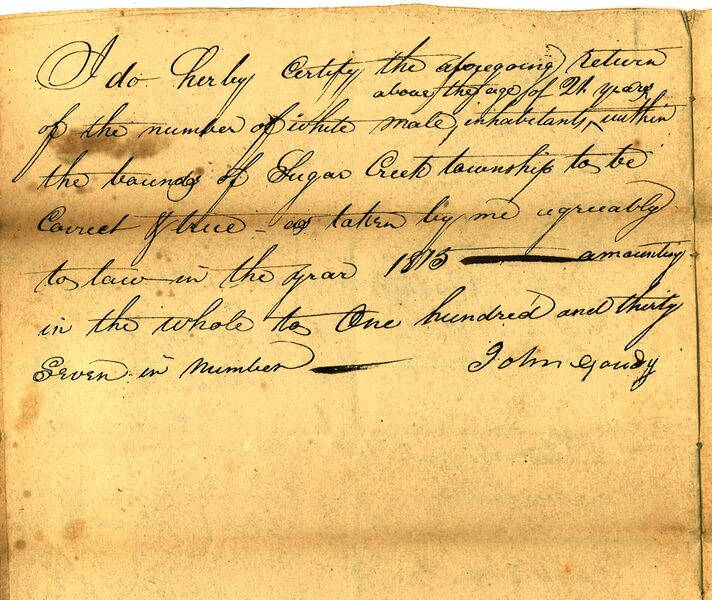 I do herby Certify the aforegoing Return
above the age of 21 years
of the number of white male inhabitants, ^ within
the bounds of Sugar Creek township to be
Correct & true - as taken by me agreeably
to law in the year 1815 — amounting
in the whole to One hundred and thirty
Seven in number — John Goudy